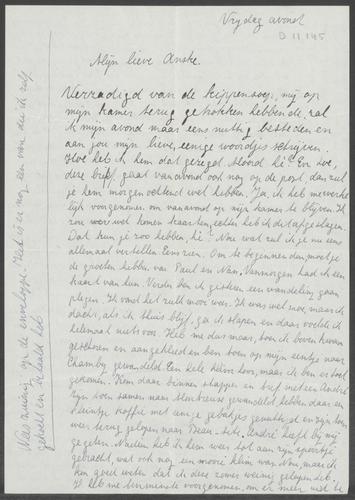 Vrijdag avond
D 11 145
Mijn lieve Anske.
Verzadigd van de kippensoep, mij op
mijn kamer terug getrokken hebbende, zal
ik mijn avond maar eens nuttig besteden en
aan jou mijn lieve, eenige woordjes schrijven.
Hoe heb ik hem dat geregel hoord hè? En zoe,
deze brief gaat vanavond ook nog op de post, dan zul
je hem morgenochtend wel hebben. Ja, ik heb me werke
lijk voorgenomen om vanavond op mijn kamer te blijven. Ik
zou weer wel komen kaarten, echter heb ik dit afgeslagen.
Dat kun je zoo hebben hè! Nou wat zal ik je nu eens
allemaal vertellen. Eens zien. Om te beginnen dan, moet je
de groeten hebben van Paul en Nan. Vanmorgen had ik een
kaart van hun. Verder ben ik gisteren een wandeling gaan
plegen. Ik vond het zelf mooi weer. Ik was wel moe, maar ik
dacht, als ik thuis blijf, ga ik slapen en daar voelde ik
helemaal niets voor. Heb me dus maar, toen ik boven kwam
geschoren en aangekleed en ben toen op mijn eentje naar
Chamby gewandeld. Een hele klim hoor, maar ik ben er toch
gekomen. Kwam daar binnen stappen en trof er André
Zijn toen samen naar Montreux gewandeld, hebben daar een
kleintje koffie met een gebakje genuttigd en zijn toen
weer terug gelopen naar
André heeft bij mij
gegeten. Nadien heb ik hem weer tot aan zijn spoortje
gebracht, wat ook nog een mooie klim was. Nou, maar ik
kan goed weten dat ik deze zomer weinig gelopen heb.
Ik heb me tenminste voorgenomen, om er meer met te
Was weinig op de enveloppe. Hier is er nog een van die ik zelf
gehoold en betaald heb